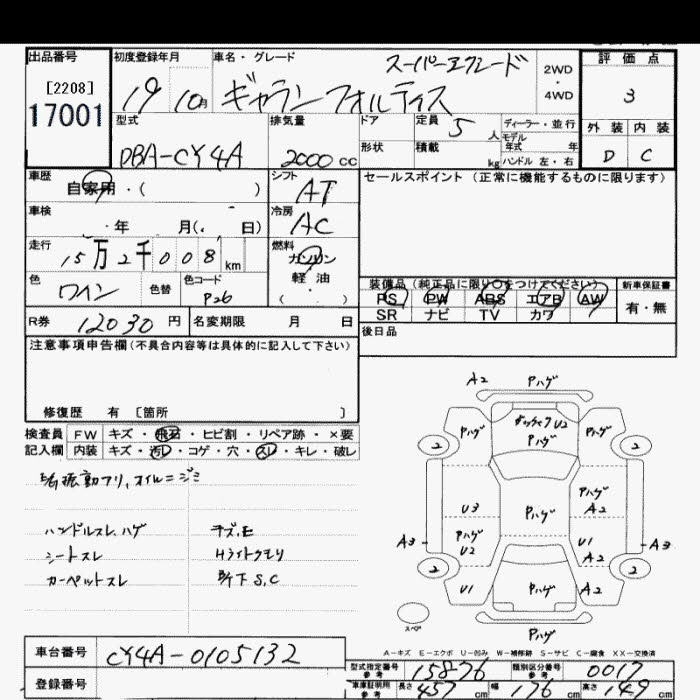 出品番号 初度登録年月 車名・グレード スーパーエクシード 2WD・4WD 評価点
[2208]
17001
19 10月 ギャランフォルティス 3
型式 排気量 ドア 定員 5人 ディーラー・並行 外装 内装
DBA-CY4A 2000cc 形状 積載 kg モデル年式 年 ハンドル 左・右 D C
車歴 自家用・( ) シフト AT セールスポイント (正常に機能するものに限ります)
車検 ・年 月(・ 日) 冷房 AC
走行 15万2千008km 燃料 ガソリン
軽油
・
( )
色 ワイン 色替 色コード P26
装備品 (純正品に限り○をつけてください) 新車保証書
PS PW ABS エアB AW 有・無
SR ナビ TV カワ
R券 12030円 名変期限 月 日 後日品
注意事項申告欄(不具合内容等は具体的に記入して下さい)
修復歴 有 〔箇所 〕
検査員 FW キズ・飛石・ヒビ割・リペア跡・×要
記入欄 内装 キズ・汚レ・コゲ・穴・スレ・キレ・破レ
振動アリ,オイルニジミ
ハンドルスレ,ハゲ キズ,E
シートスレ Hライトクモリ
カーペットスレ 下S,C
A2 Pハゲ
Pハゲ U2 Pハゲ
Pハゲ
2 2
Pハゲ
U3 Pハゲ A2
A3 Pハゲ U1 A3
U2 A2
2 2
U1 Pハゲ A2
スペア Pハゲ
A-キズ E-エクボ U-凹み W-補修跡 S-サビ C-腐食 XX-交換済
車台番号 CY4A-0105132
型式指定番号 参考 15876 類別区分番号 参考 0017
登録番号
車庫証明用 参考 長さ 457cm 幅 176cm 高さ 149cm